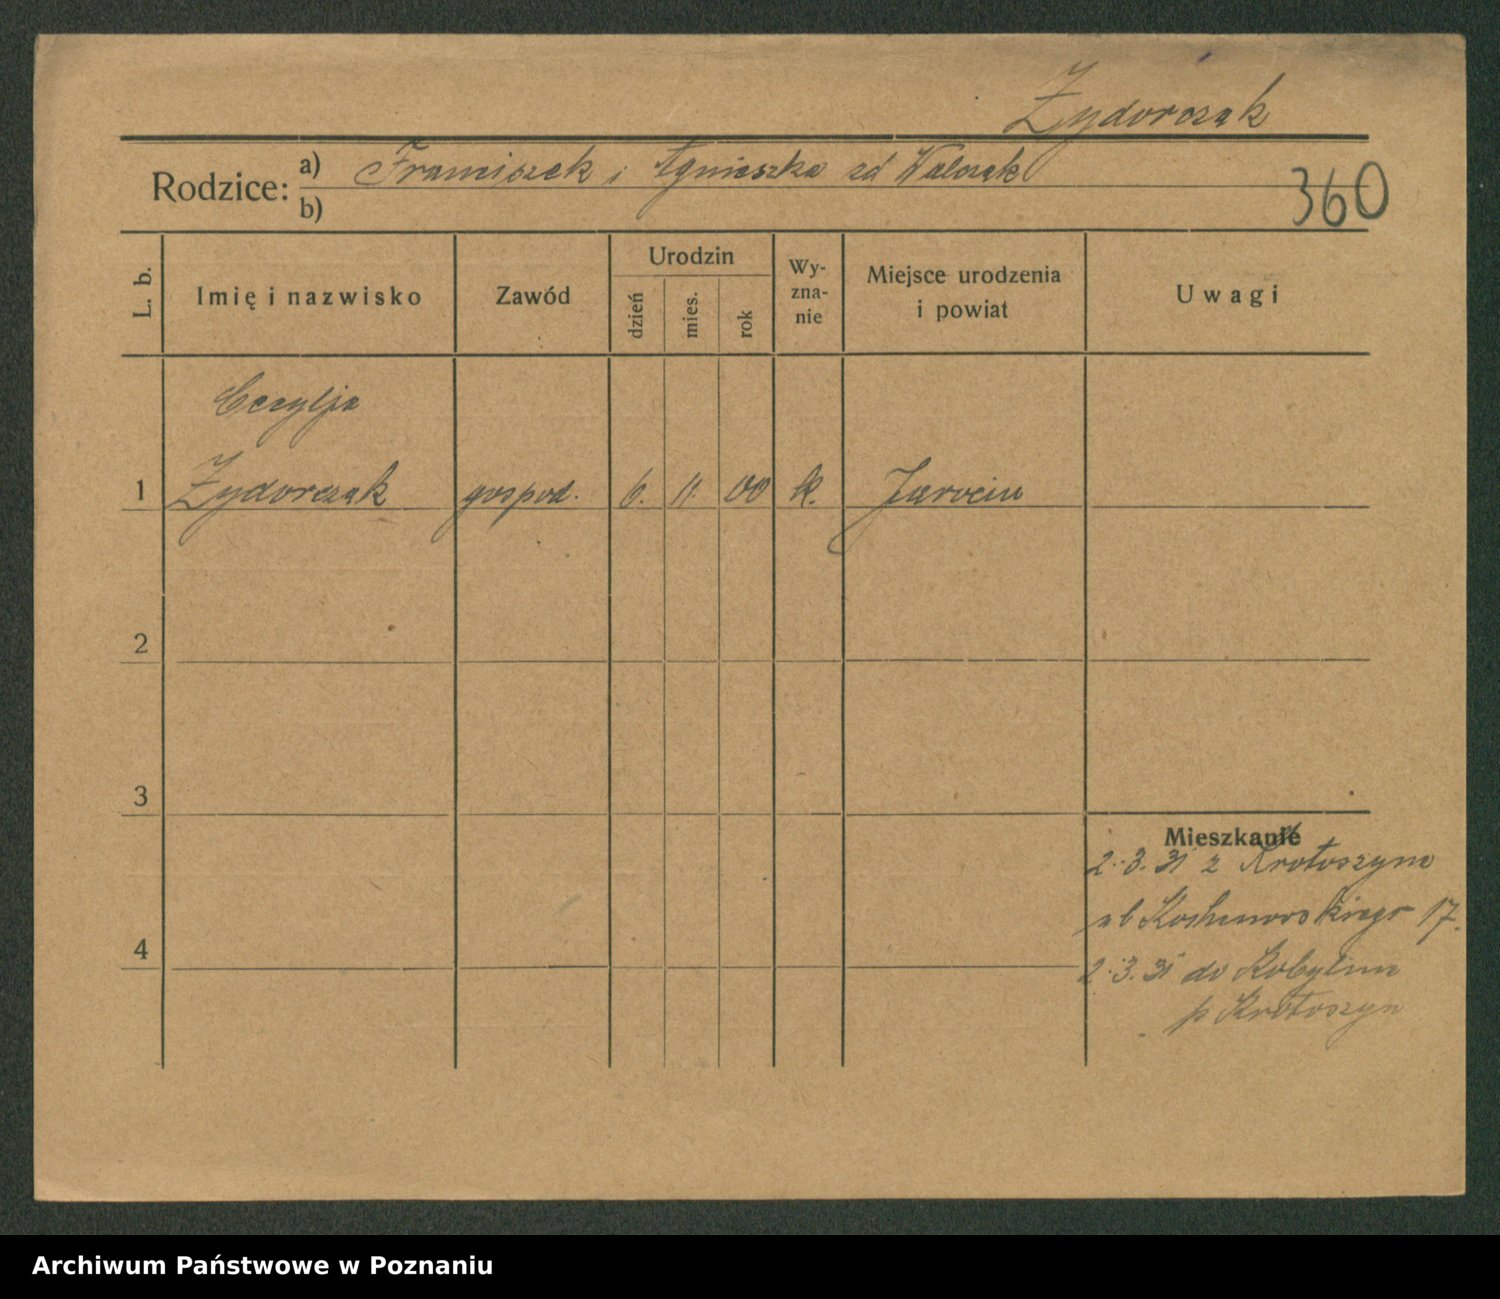 Zydorczak
Rodzice:
a) Franciszek i Agnieszka zd Walczak
b)
360
L. b.
Imię i nazwisko
Zawód
Urodzin
dzień
mies.
rok
Wy-
zna-
nie
Miejsce urodzenia
i powiat
Uwagi
Cecylja
1 Zydorczak gospod. 6. 11. 00 k. Jarocin
2
3
4
Mieszkanie
2.3.31 z Krotoszyna
17.
2.3.31 do Kobylina
p Krotoszyn
Archiwum Państwowe w Poznaniu